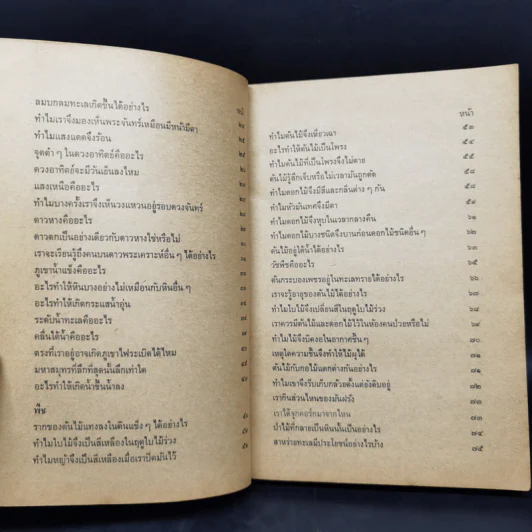 หน้า
ลมบกลมทะเลเกิดขึ้นได้อย่างไร
ทำไมเราจึงมองเห็นพระจันทร์เหมือนมีหน้ามีตา
ทำไมแสงแดดจึงร้อน
จุดดำ ๆ ในดวงอาทิตย์คืออะไร
ดวงอาทิตย์จะมีวันเย็นลงไหม
แสงเหนือคืออะไร
ทำไมบางครั้งเราจึงเห็นวงแหวนอยู่รอบดวงจันทร์
ดาวหางคืออะไร
ดาวตกเป็นอย่างเดียวกับดาวหางใช่หรือไม่
เราจะเรียนรู้ถึงคนบนดาวพระเคราะห์อื่น ๆ ได้อย่างไร
ภูเขาน้ำแข็งคืออะไร
อะไรทำให้หินบางอย่างไม่เหมือนกับหินอื่น ๆ
อะไรทำให้เกิดกระแสน้ำอุ่น
ระดับน้ำทะเลคืออะไร
คลื่นใต้น้ำคืออะไร
ตรงที่เราอยู่อาจเกิดภูเขาไฟระเบิดได้ไหม
มหาสมุทรที่ลึกที่สุดนั้นลึกเท่าใด
อะไรทำให้เกิดน้ำขึ้นน้ำลง
พืช
รากของต้นไม้แทงลงในดินแข็ง ๆ ได้อย่างไร
ทำไมใบไม้จึงเป็นสีเหลืองในฤดูใบไม้ร่วง
ทำไมหญ้าจึงเป็นสีเหลืองเมื่อเราปิดมันไว้
หน้า
ทำไมต้นไม้จึงเหี่ยวเฉา ๕๓
อะไรทำให้ต้นไม้เป็นโพรง ๕๔
ทำไมต้นไม้ที่เป็นโพรงจึงไม่ตาย ๕๕
ต้นไม้รู้สึกเจ็บหรือไม่เวลามันถูกตัด ๕๘
ทำไมดอกไม้จึงมีสีและกลิ่นต่าง ๆ กัน ๕๘
ทำไมหัวมันเทศจึงมีตา ๕๙
ทำไมดอกไม้จึงหุบในเวลากลางคืน ๖๑
ทำไมดอกไม้บางชนิดจึงบานก่อนดอกไม้ชนิดอื่น ๆ ๖๒
ต้นไม้อยู่ใต้น้ำได้อย่างไร ๖๓
วัชพืชคืออะไร ๖๕
ต้นกระบองเพชรอยู่ในทะเลทรายได้อย่างไร ๖๖
เราจะรู้อายุของต้นไม้ได้อย่างไร
ทำไมใบไม้จึงเปลี่ยนสีในฤดูใบไม้ร่วง ๖๘
เราควรมีต้นไม้และดอกไม้ไว้ในห้องคนป่วยหรือไม่ ๖๙
ทำไมไม้จึงบิดงอในอากาศชื้น ๆ ๗๐
เหตุใดความชื้นจึงทำให้ไม้ผุได้ ๗๑
ต้นไม้กับกอไม้แตกต่างกันอย่างไร ๗๑
ทำไมเขาจึงรีบเก็บกล้วยตั้งแต่ยังดิบอยู่ ๗๒
เรากินส่วนไหนของมันฝรั่ง
เราได้จุกคอร์กมาจากไหน ๗๓
ป่าไม้ที่กลายเป็นหินนั้นเป็นอย่างไร ๗๔
สาหร่ายทะเลมีประโยชน์อย่างไรบ้าง ๗๕